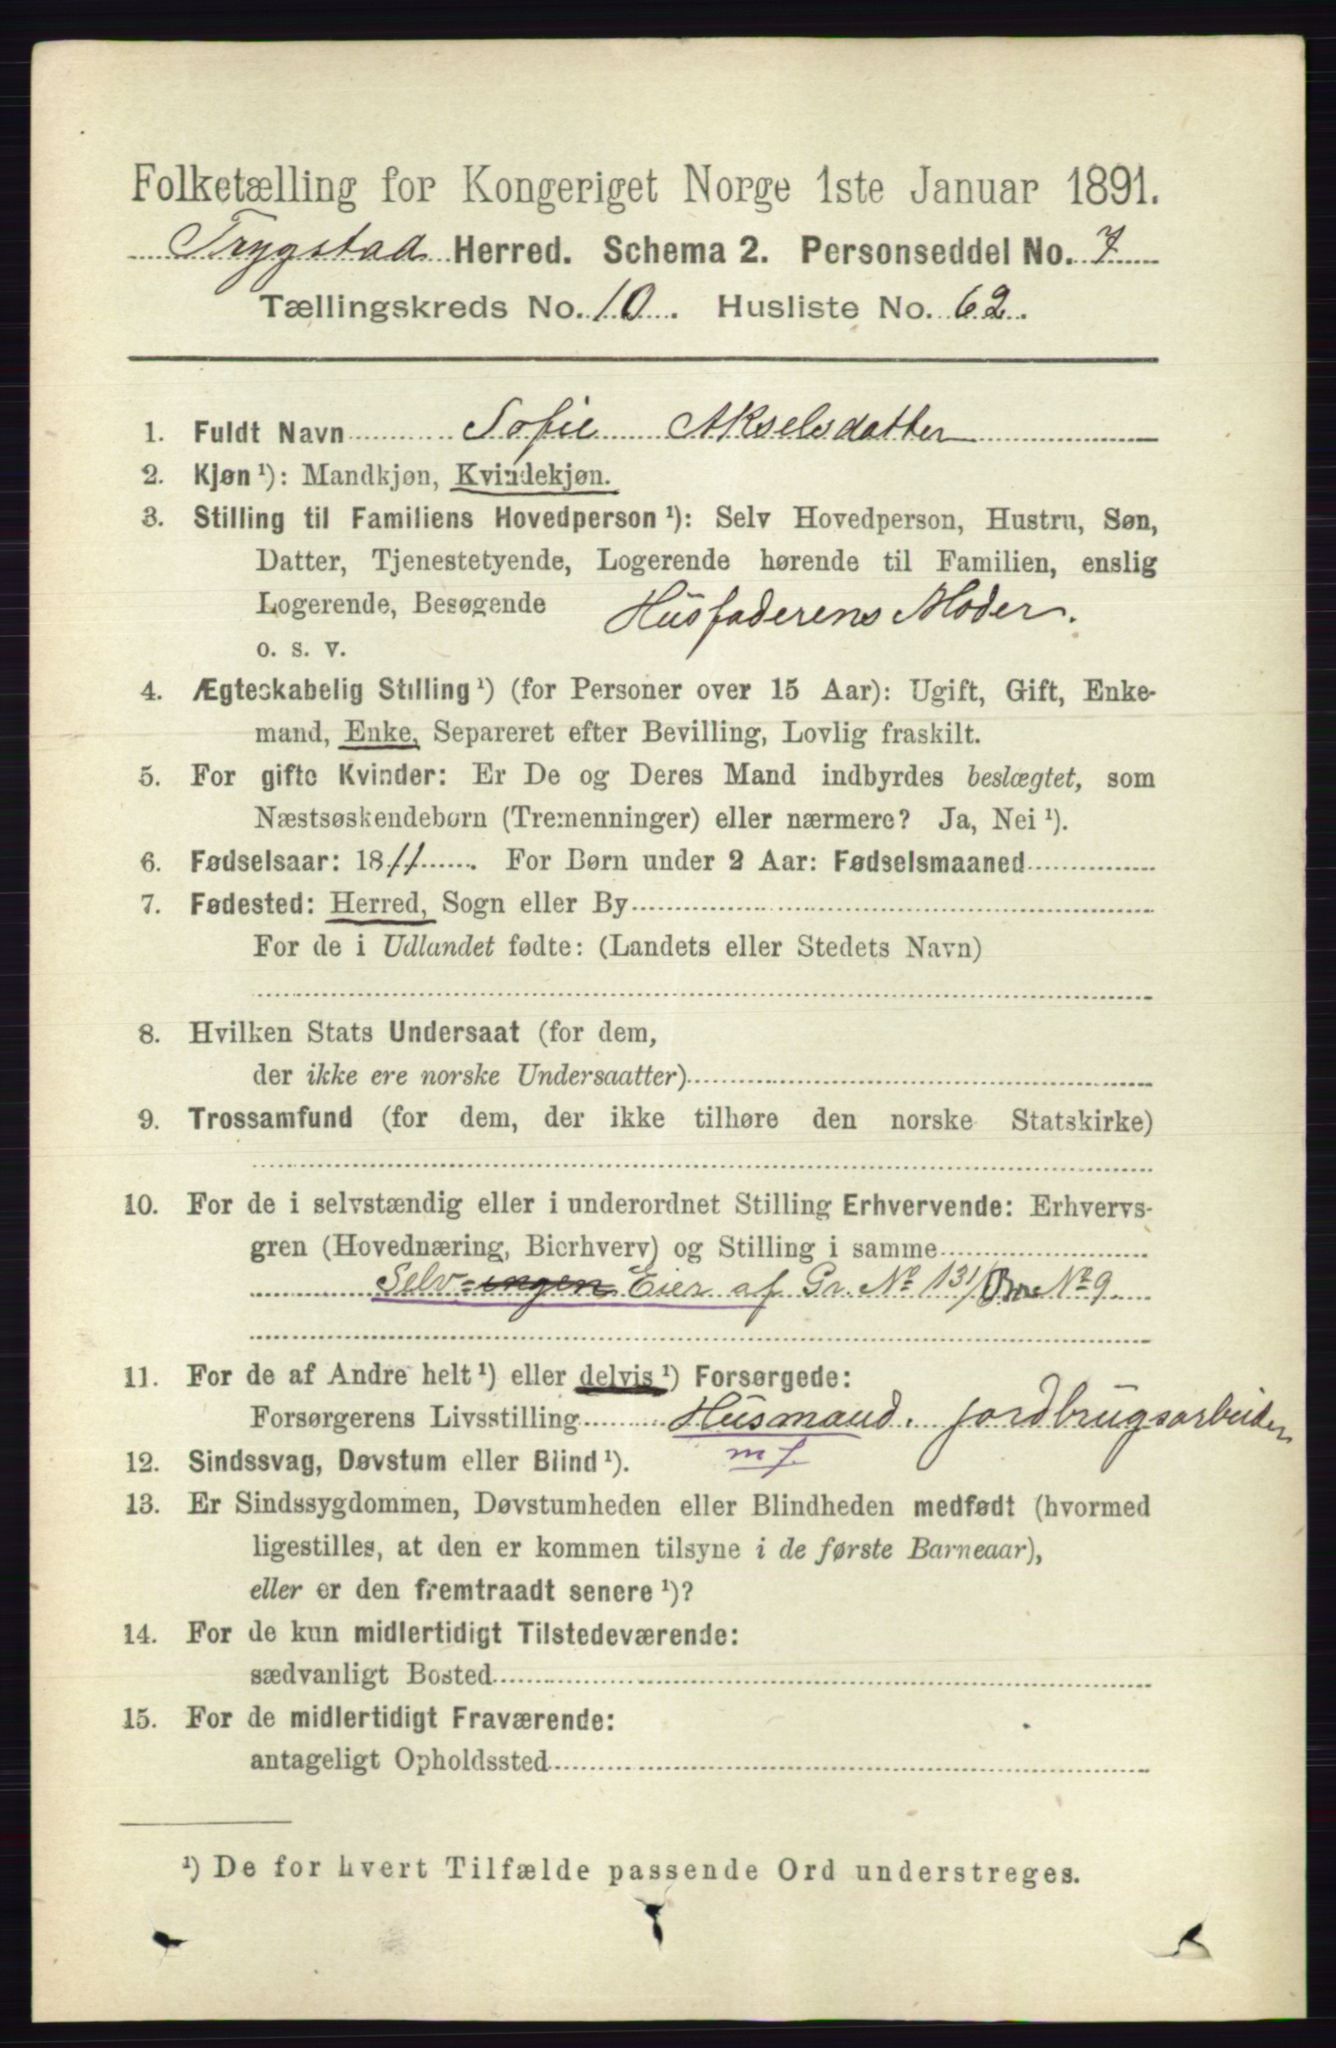 Folketælling for Kongeriget Norge 1ste Januar 1891.
Trygstad Herred. Schema 2. Personseddel No. 7
Tællingskreds No. 10. Husliste No. 62.
1. Fuldt Navn Sofie Akselsdatter
2. Kjøn¹): Mandkjøn, Kvindekjøn.
3. Stilling til Familiens Hovedperson¹): Selv Hovedperson, Hustru, Søn,
Datter, Tjenestetyende, Logerende hørende til Familien, enslig
Logerende, Besøgende Husfaderens Moder.
o. s. v.
4. Ægteskabelig Stilling¹) (for Personer over 15 Aar): Ugift, Gift, Enke-
mand, Enke, Separeret efter Bevilling, Lovlig fraskilt.
5. For gifte Kvinder: Er De og Deres Mand indbyrdes beslægtet, som
Næstsøskendebørn (Tremenninger) eller nærmere? Ja, Nei¹).
6. Fødselsaar: 1811. For Børn under 2 Aar: Fødselsmaaned
7. Fødested: Herred, Sogn eller By
For de i Udlandet fødte: (Landets eller Stedets Navn)
8. Hvilken Stats Undersaat (for dem,
der ikke ere norske Undersaatter)
9. Trossamfund (for dem, der ikke tilhøre den norske Statskirke)
10. For de i selvstændig eller i underordnet Stilling Erhvervende: Erhvervs-
gren (Hovednæring, Bierhverv) og Stilling i samme
Selv-ingen Eier af Gr. No 131/Brn No 9
11. For de af Andre helt¹) eller delvis¹) Forsørgede:
Forsørgerens Livsstilling Husmand. jordbrugsarbeider
m f.
12. Sindssvag, Døvstum eller Blind¹).
13. Er Sindssygdommen, Døvstumheden eller Blindheden medfødt (hvormed
ligestilles, at den er kommen tilsyne i de første Barneaar),
eller er den fremtraadt senere¹)?
14. For de kun midlertidigt Tilstedeværende:
sædvanligt Bosted
15. For de midlertidigt Fraværende:
antageligt Opholdssted
¹) De for hvert Tilfælde passende Ord understreges.